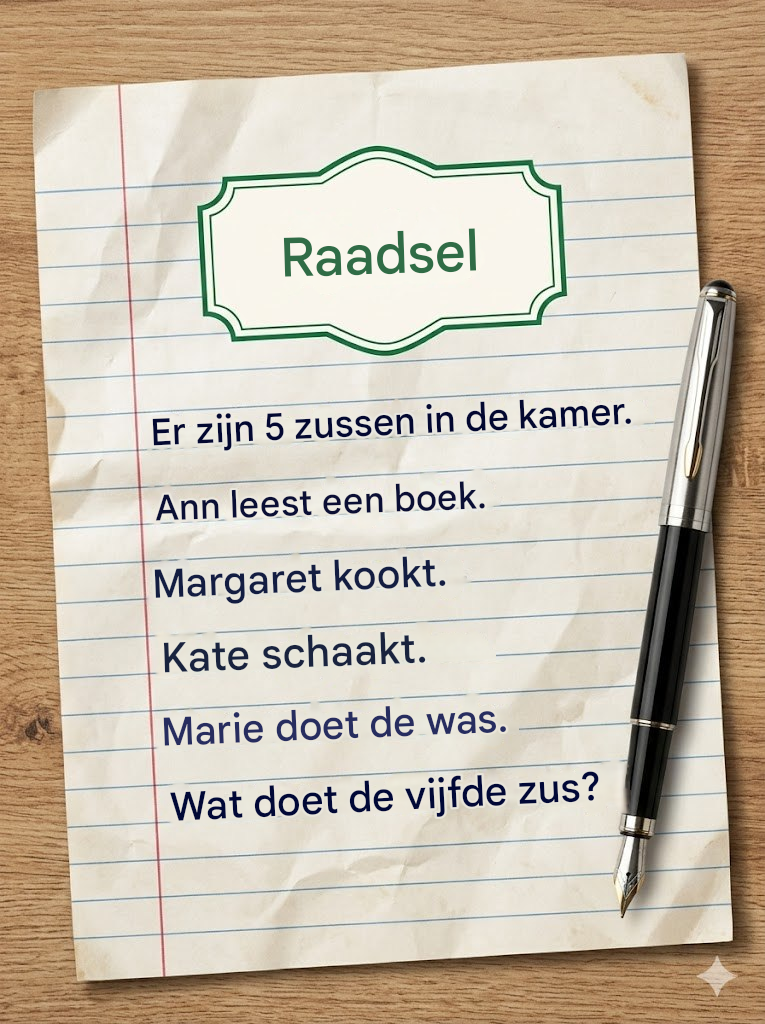 Raadsel
Er zijn 5 zussen in de kamer.
Ann leest een boek.
Margaret kookt.
Kate schaakt.
Marie doet de was.
Wat doet de vijfde zus?